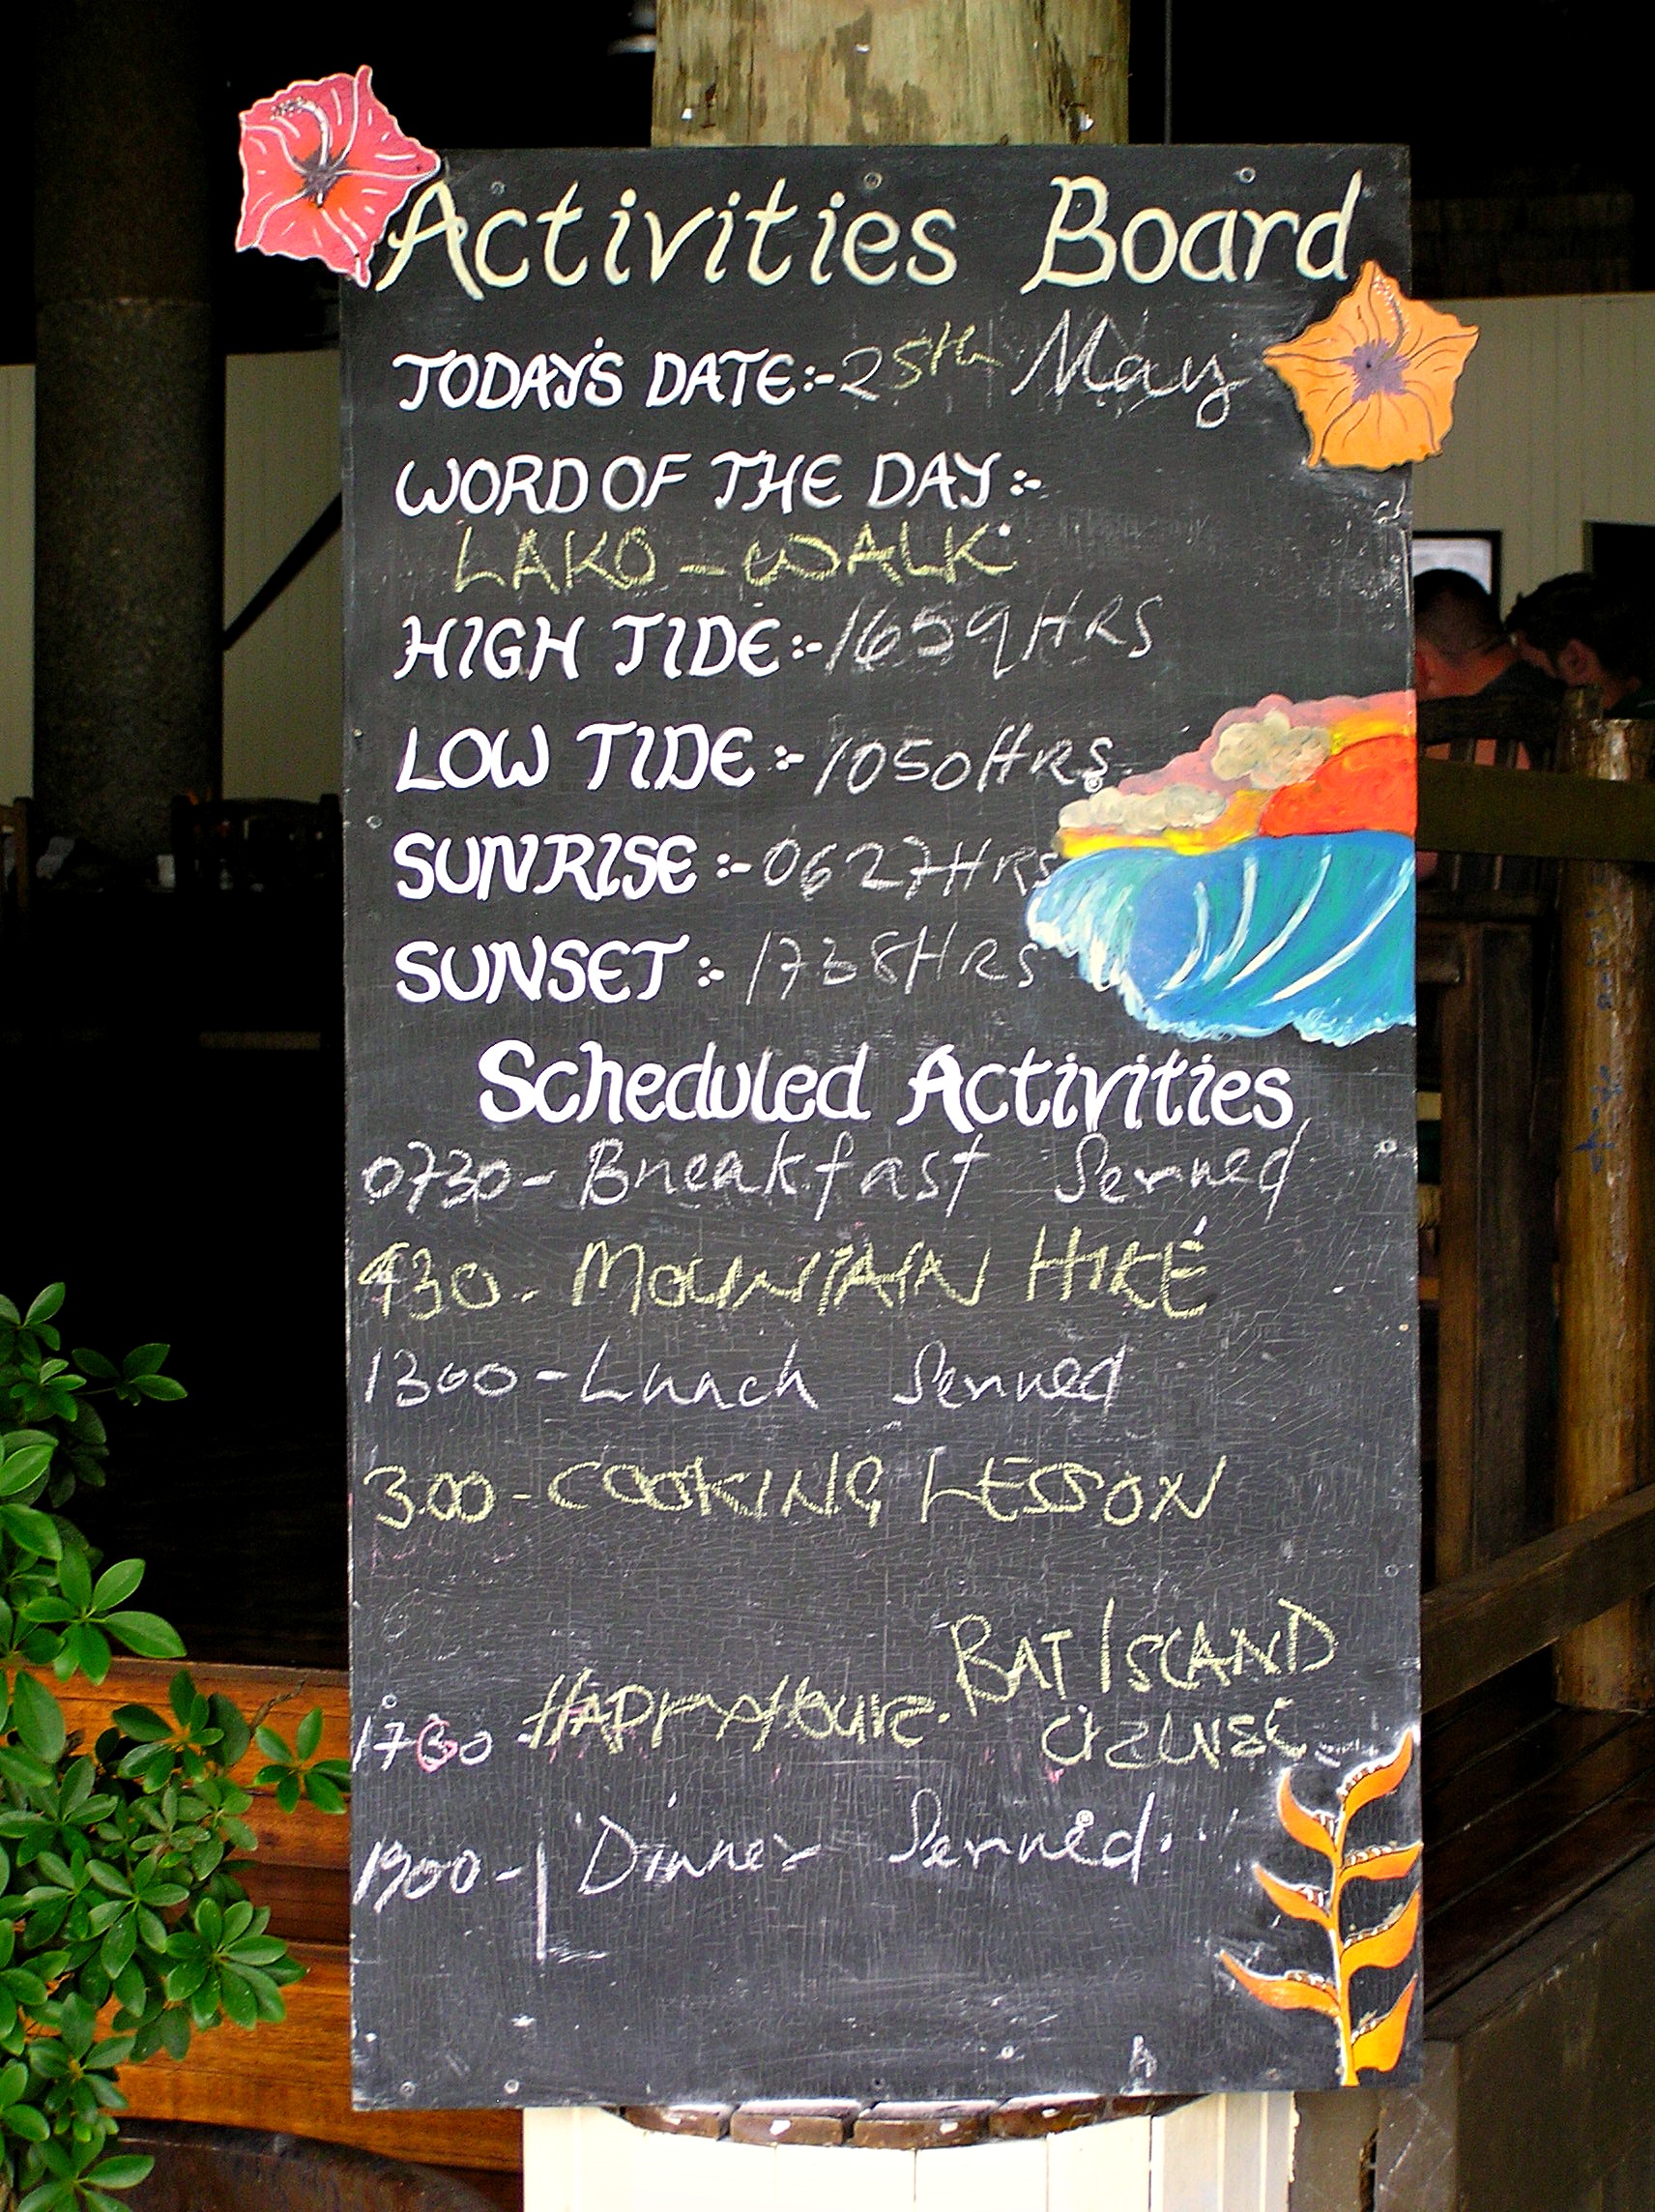 Activities Board
TODAY'S DATE:- 25th May
WORD OF THE DAY:-
LAKO - WALK
HIGH TIDE:- 1659HRS
LOW TIDE:- 1050HRS
SUNRISE:- 0627HRS
SUNSET:- 1738HRS
Scheduled Activities
0730 - Breakfast Served
930 - MOUNTAIN HIKE
1300 - Lunch Served
3.00 - COOKING LESSON
BAT ISLAND
1730 HAPPY HOUR.
1900 - Dinner Served